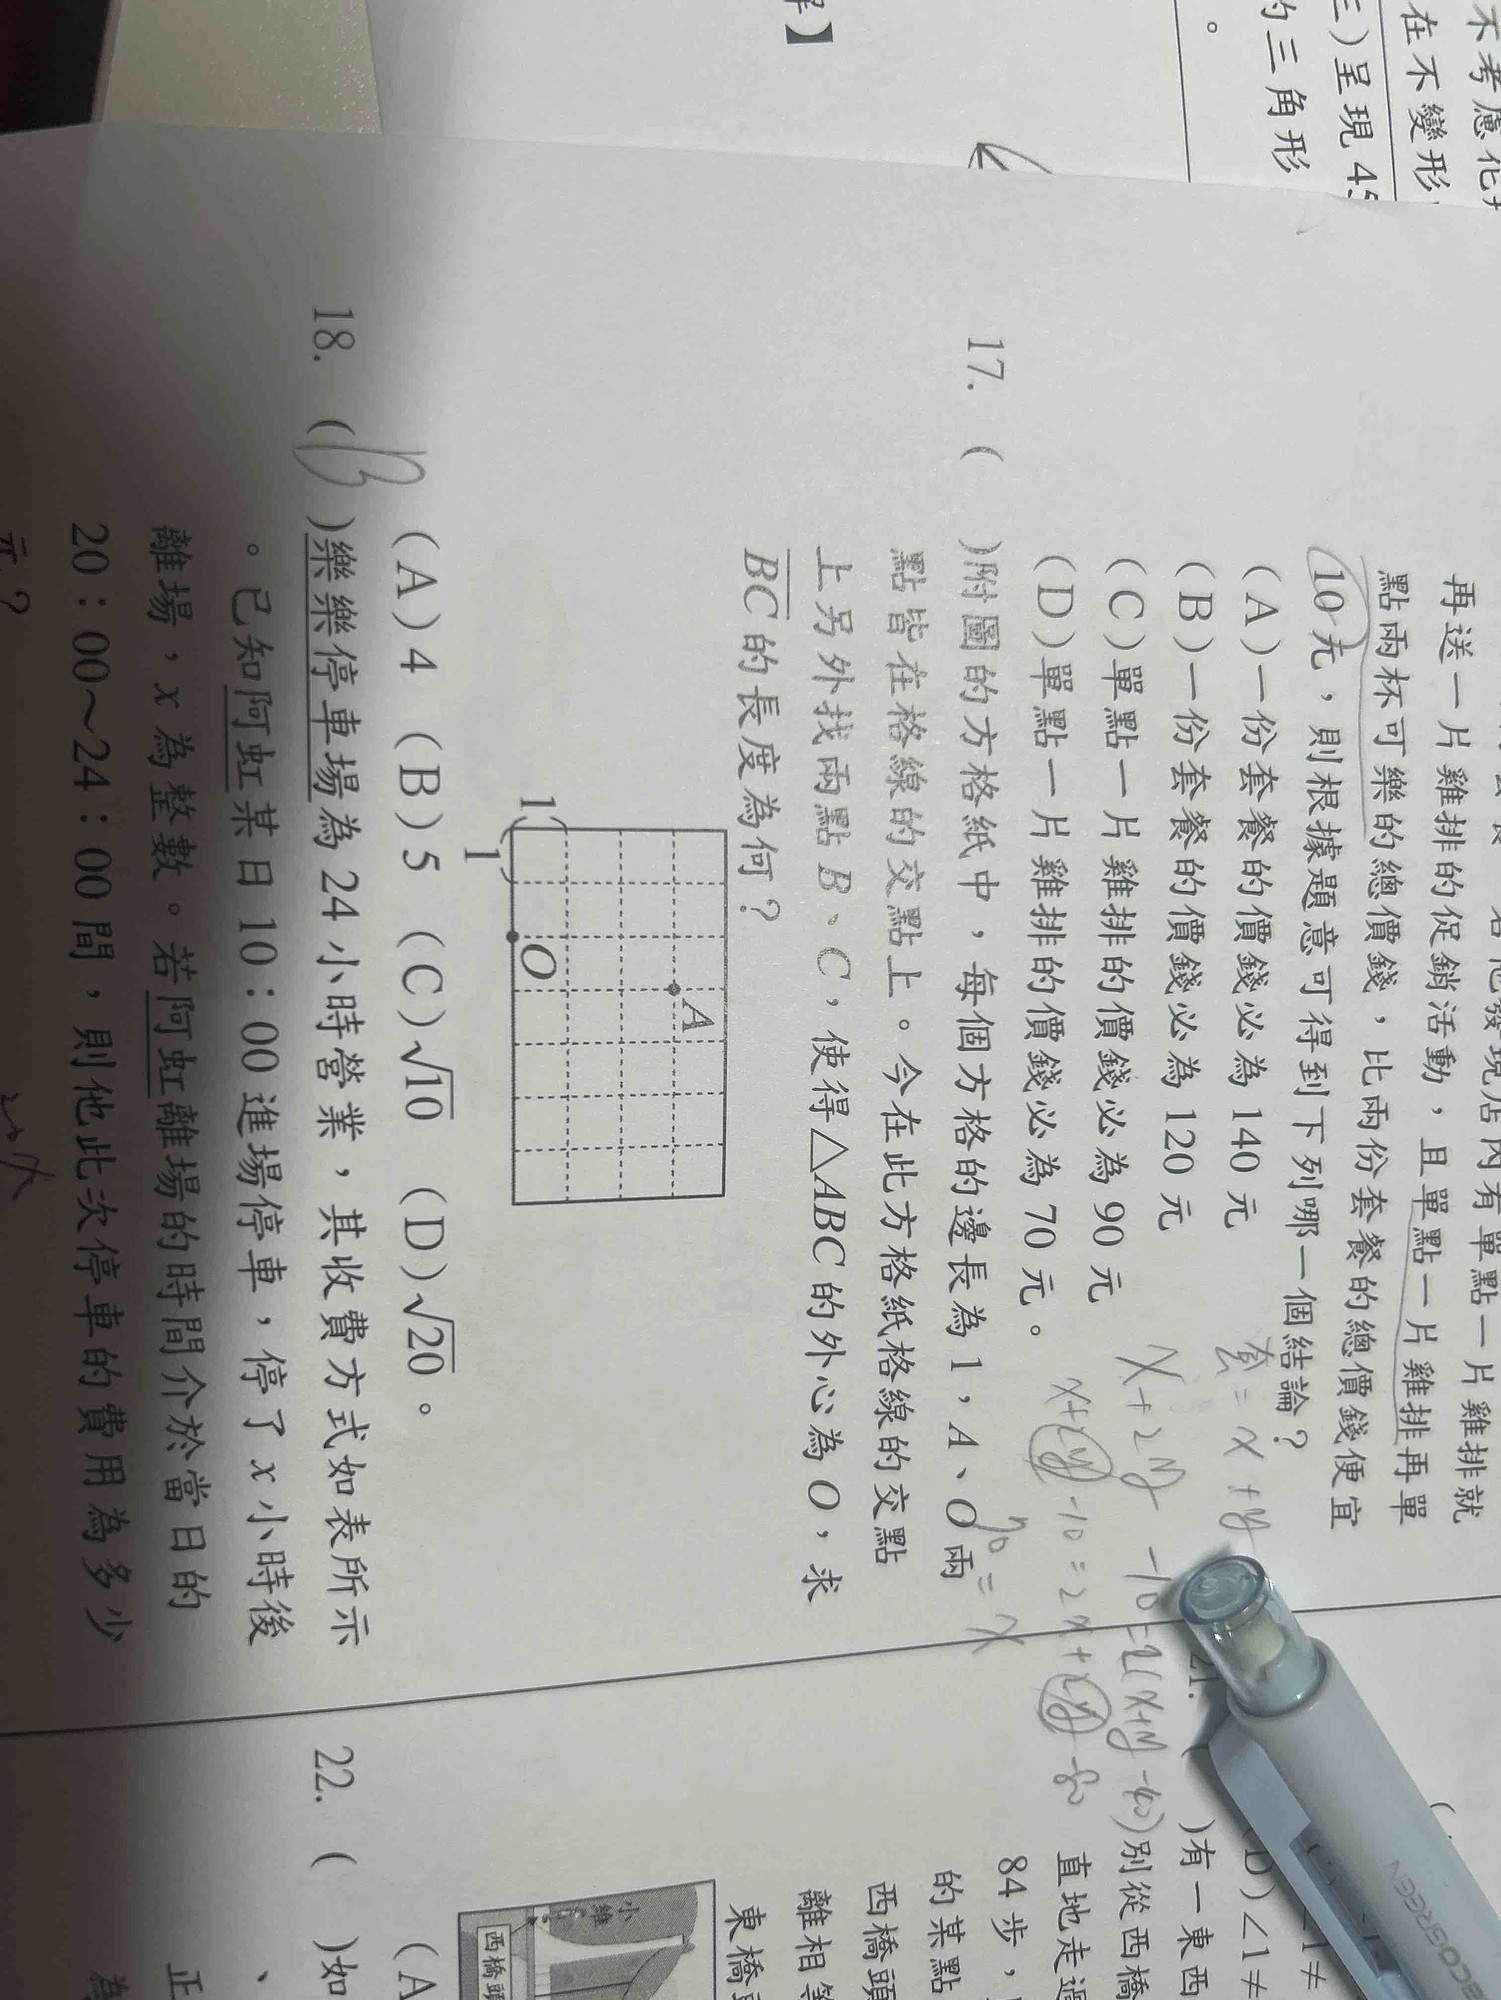 不考慮化
在不變形
三)呈現 45
的三角形
。
解】
再送一片雞排的促銷活動，且單點一片雞排再單
點兩杯可樂的總價錢，比兩份套餐的總價錢便宜
10 元，則根據題意可得到下列哪一個結論？
(A)一份套餐的價錢必為 140 元
(B)一份套餐的價錢必為 120 元
(C)單點一片雞排的價錢必為 90 元
(D)單點一片雞排的價錢必為 70 元。
套 = x + y
x + 2y - 10 = 2(x+y-40)
x+2y - 10 = 2x + 2y - 80
70 = x
17. ( )附圖的方格紙中，每個方格的邊長為 1，A、O 兩
點皆在格線的交點上。今在此方格紙格線的交點
上另外找兩點 B、C，使得△ABC 的外心為 O，求
BC 的長度為何？
A
O
1
1
(A) 4 (B) 5 (C) √10 (D) √20。
18. (B)樂樂停車場為 24 小時營業，其收費方式如表所示
。已知阿虹某日 10：00 進場停車，停了 x 小時後
離場，x 為整數。若阿虹離場的時間介於當日的
20：00～24：00 間，則他此次停車的費用為多少
元？
21.
(D)∠1≠
)有一東西
別從西橋
直地走過
84 步，
的某點
西橋頭
離相等
東橋
小維
西橋頭
(A
22. ( )如
、
正
為
ECOGREEN